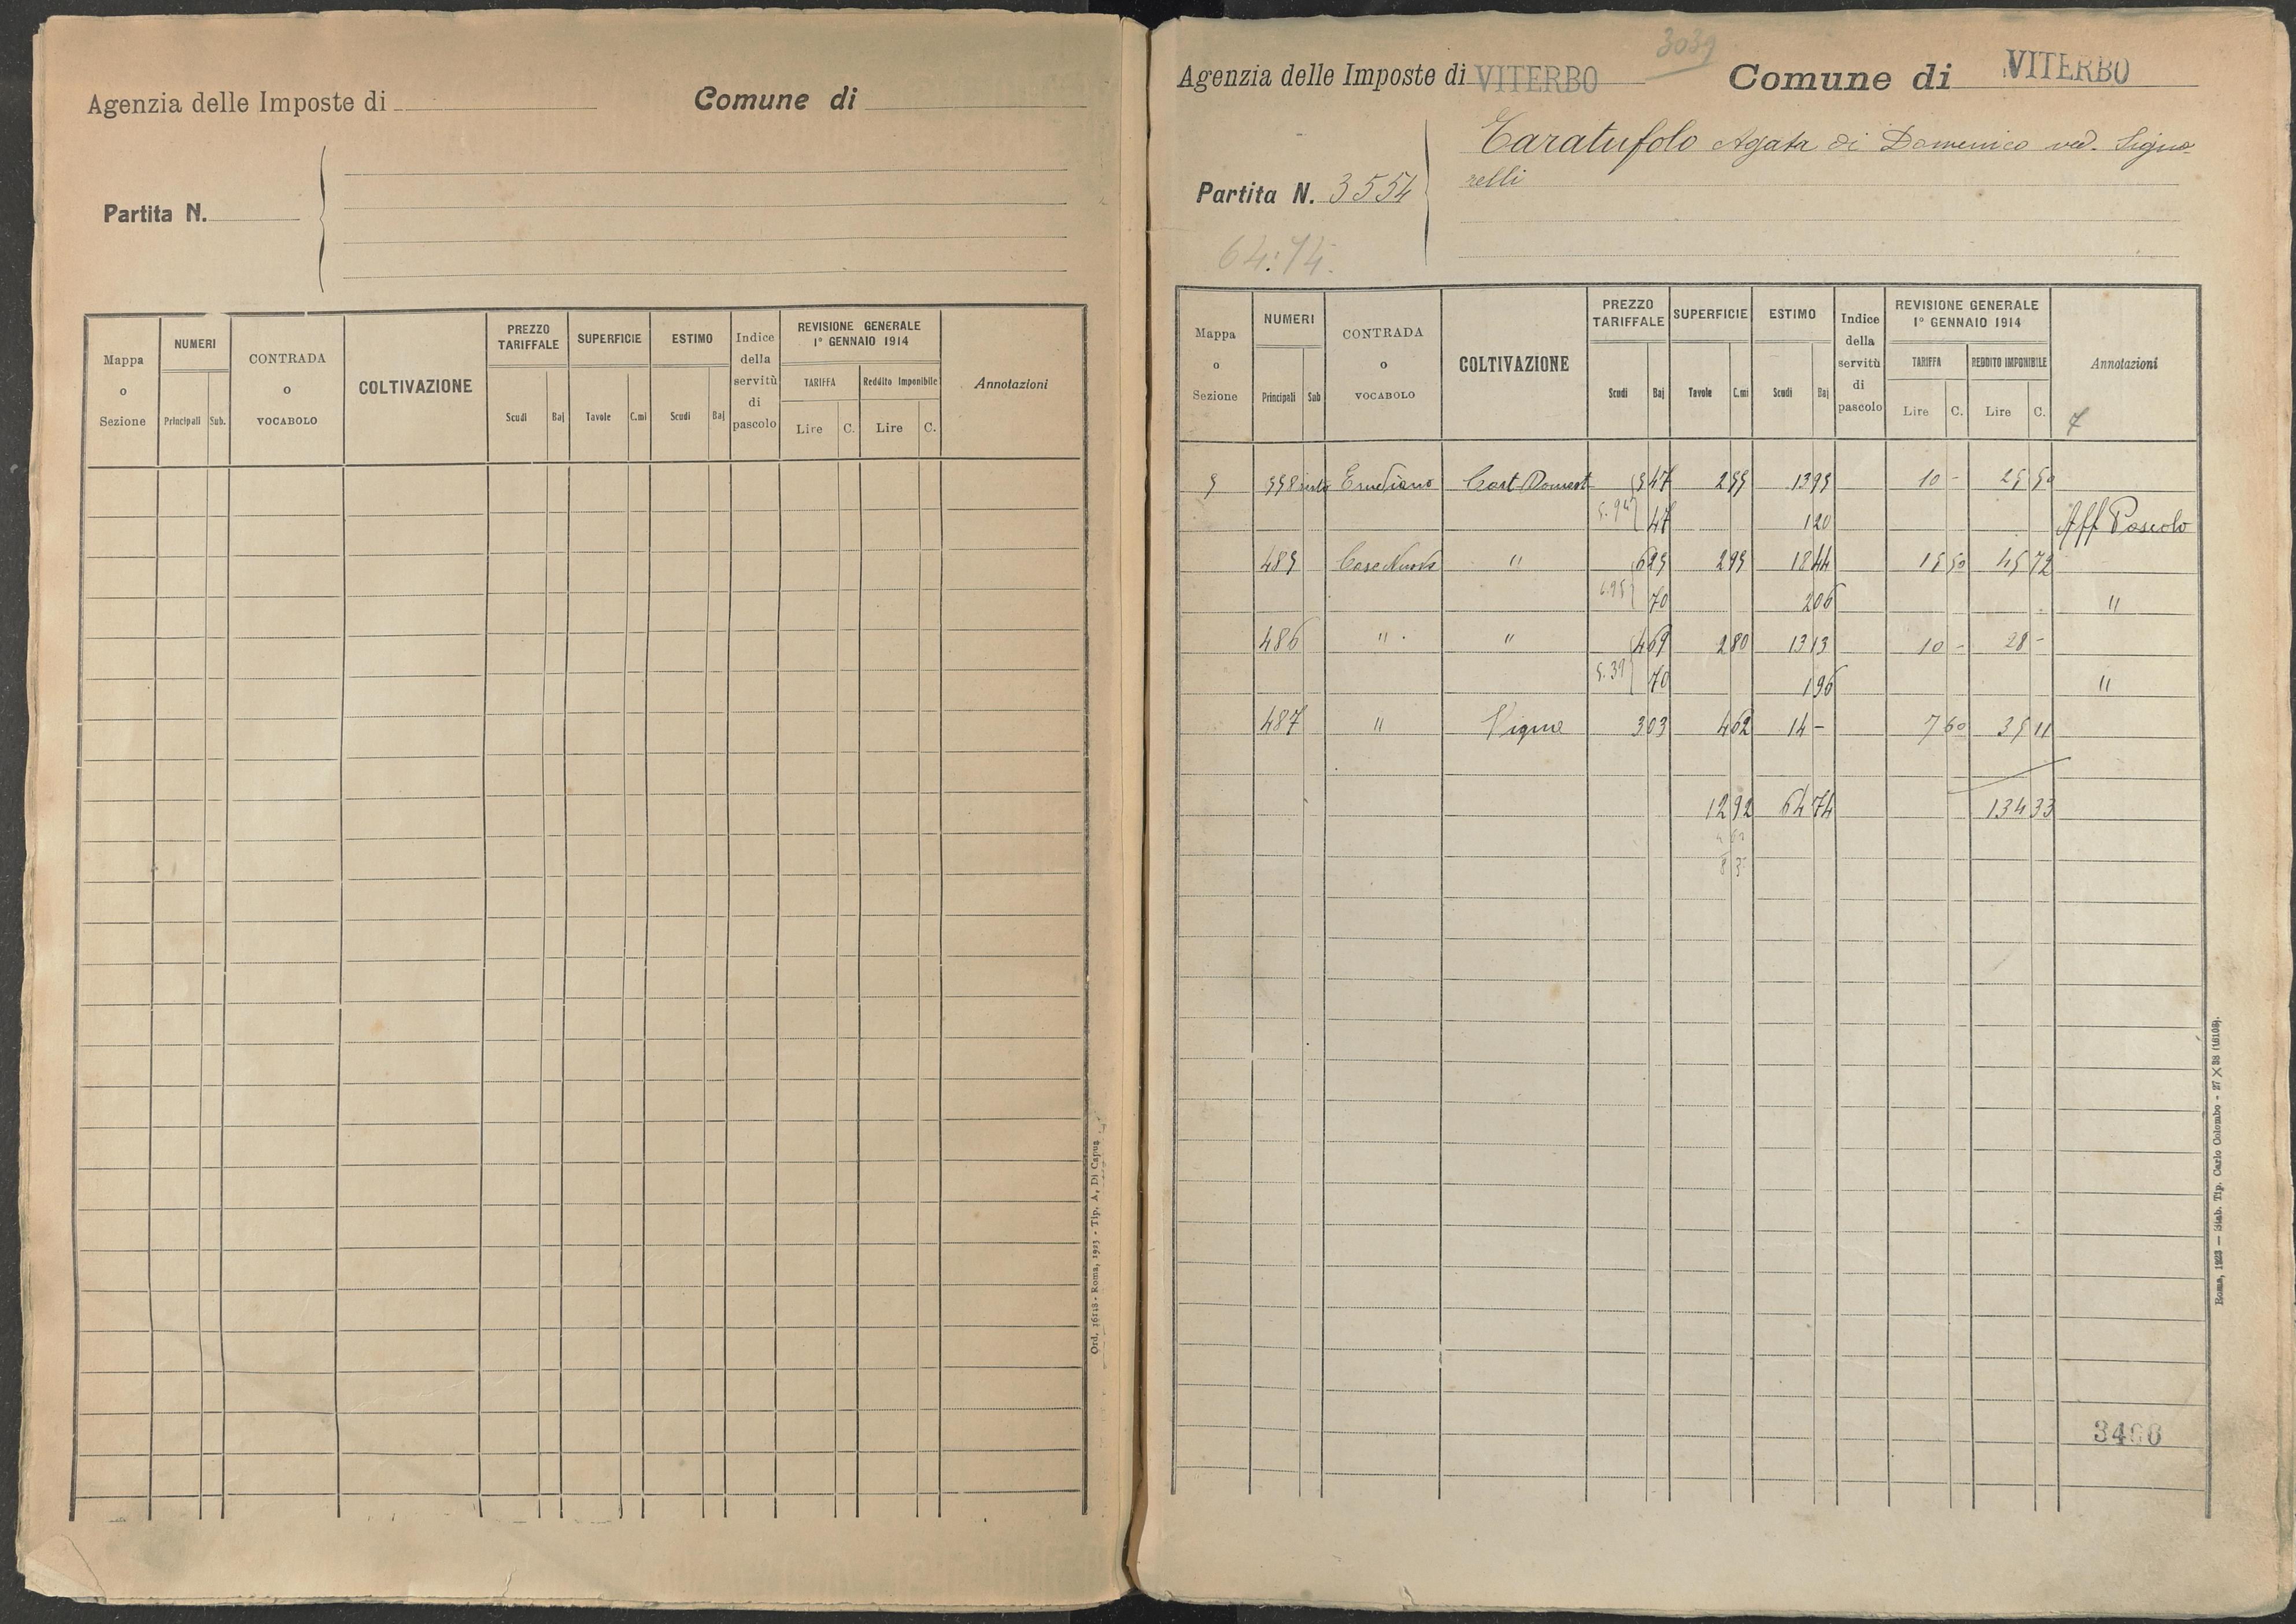 Agenzia delle Imposte di
Comune di
Partita N.
Mappa o Sezione
NUMERI
Principali
Sub.
CONTRADA o VOCABOLO
COLTIVAZIONE
PREZZO TARIFFALE
Scudi
Baj
SUPERFICIE
Tavole
C.mi
ESTIMO
Scudi
Baj
Indice della servitù di pascolo
REVISIONE GENERALE
1° GENNAIO 1914
TARIFFA
Lire
C.
Reddito Imponibile
Lire
C.
Annotazioni
Ord. 16118 - Roma, 1923 - Tip. A, Di Capua
3039
Agenzia delle Imposte di VITERBO
Comune di VITERBO
Taratufolo Agata di Domenico ved. Signo-
relli
Partita N. 3554
64:74.
Mappa o Sezione
NUMERI
Principali
Sub
CONTRADA o VOCABOLO
COLTIVAZIONE
PREZZO TARIFFALE
Scudi
Baj
SUPERFICIE
Tavole
C.mi
ESTIMO
Scudi
Baj
Indice della servitù di pascolo
REVISIONE GENERALE
1° GENNAIO 1914
TARIFFA
Lire
C.
REDDITO IMPONIBILE
Lire
C.
Annotazioni
7
5 558 Cast Domest 5 47 2 55 13 95 10 - 25 50
5.94 47 1 20 Aff Pascolo
485 Case Nuove " 6 25 2 95 18 44 15 50 45 72
6.95 70 2 06 "
486 " " 4 69 2 80 13 13 10 - 28 -
5.39 70 1 96 "
487 " Vigna 3 03 4 62 14 - 7 60 35 11
12 92 64 74 134 33
4 62
8 3
3408
Roma, 1923 — Stab. Tip. Carlo Colombo - 27 X 38 (16108).